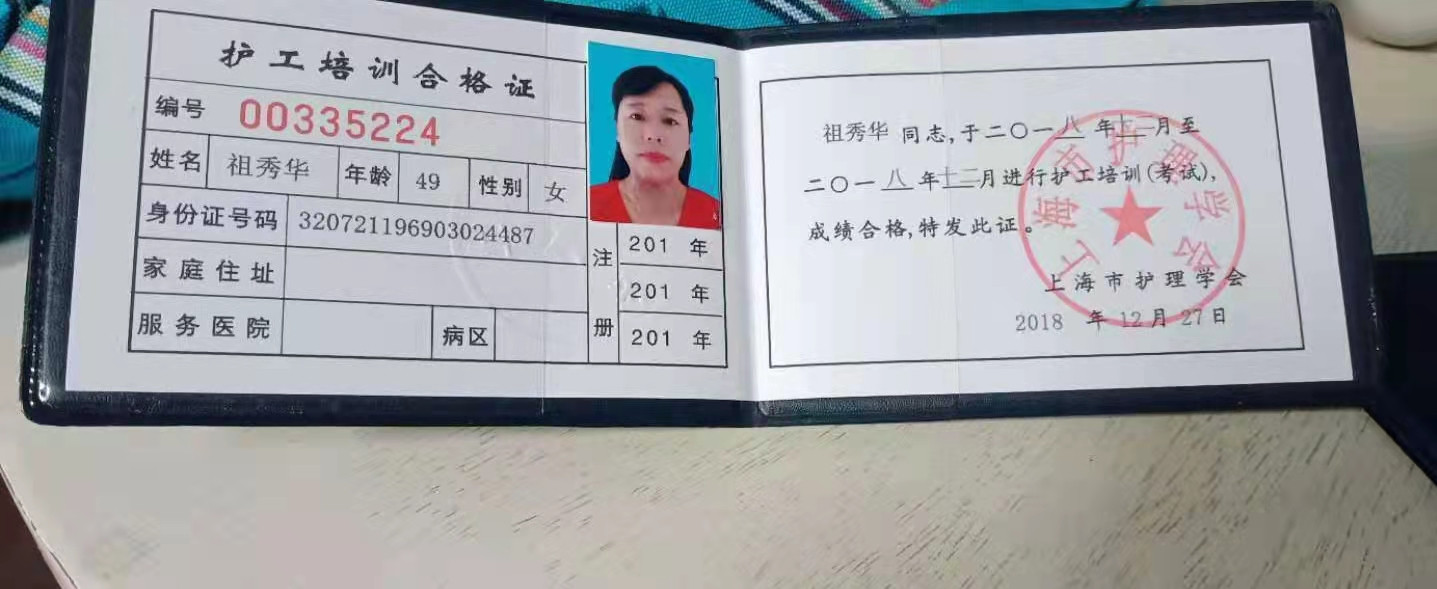 护工培训合格证
编号 00335224
姓名 祖秀华 年龄 49 性别 女
身份证号码 320721196903024487
家庭住址
服务医院 病区
注册
201 年
201 年
201 年
祖秀华 同志,于二〇一八年十二月至
二〇一八年十二月进行护工培训(考试),
成绩合格,特发此证。
上海市护理学会
2018 年 12月 27日
上海市护理学会